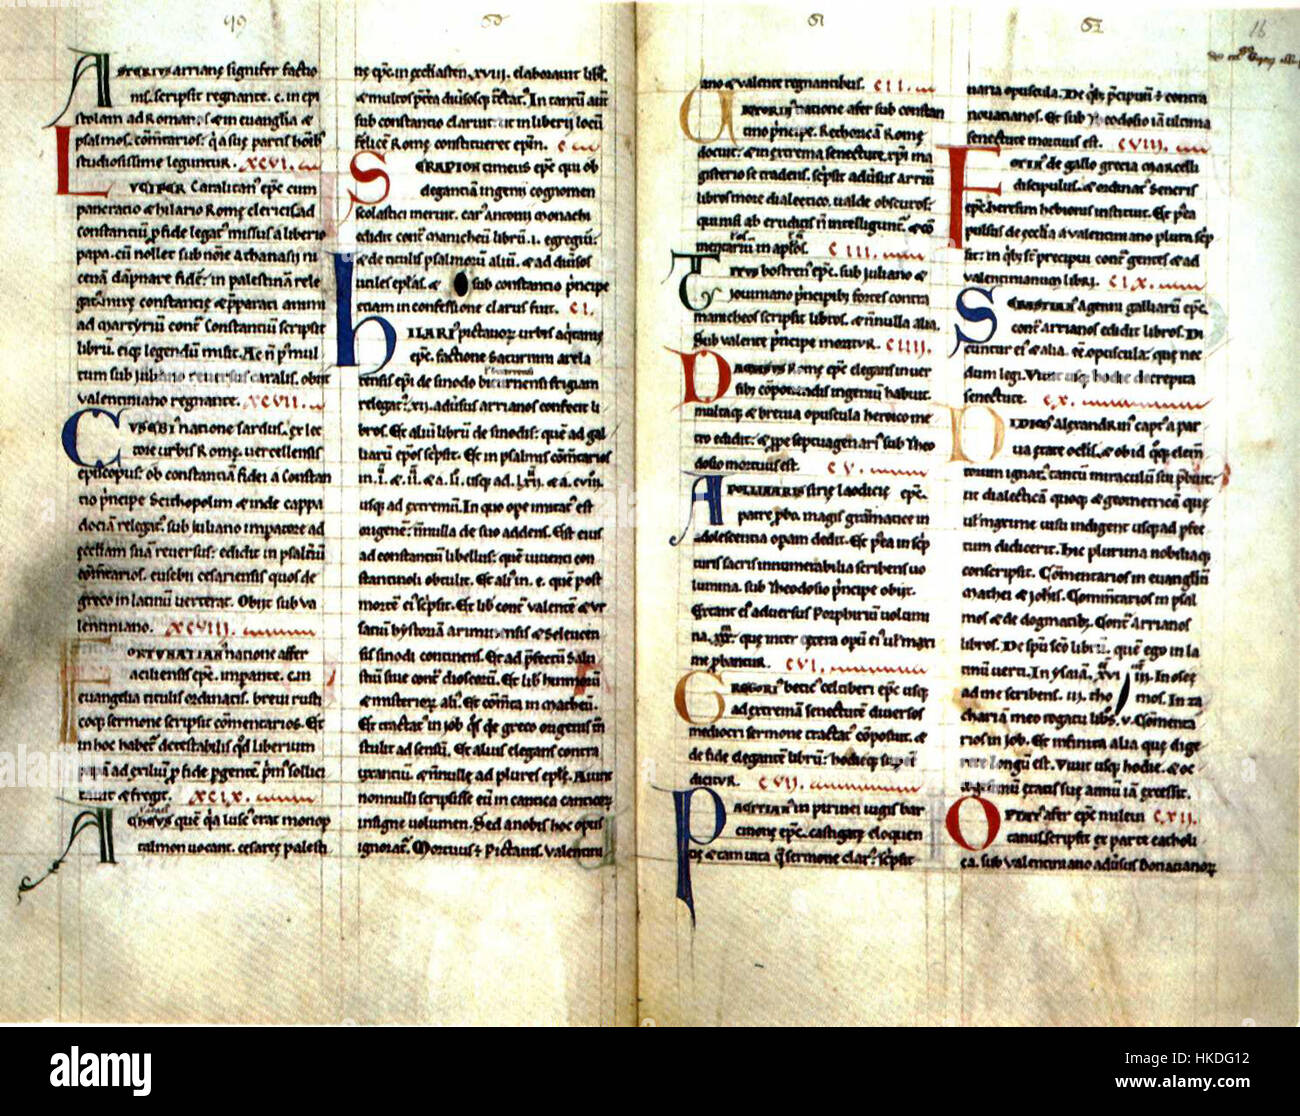 49
ASTERIUS arrianę signifer factio
nis. scripsit regnante. c. in epi
stolam ad Romanos & in euanglia &
psalmos. com̄tarios: q̄ a suę partis hoīb;
studiosissime leguntur. XCVI.
LUCIFER Caralitan' ep̄c cum
pancratio & hilario Romę clericis. ad
constantiū ꝓ fide legat' missus a liberio
papa. cū nollet sub noīe athanasii ni
cenā dāpnare fidē: in palestinā rele
gat'. mirę constancię & p̄parati animi
ad martyriū. contͣ Constanciū scripsit
librū. eiq; legendū misit. Ac n̄ p' mul
tum sub Juliano reuersus caralis. obiit
valentiniano regnante. XCVII.
EUSEBI' natione sardus. ex lec
tore urbis Romę. uercellensis
episcopus. ob constanciā fidei a Constan
tio p'ncipe Scithopolim & inde cappa
dociā relegat'. sub Juliano impatore ad
ęccłiam suā reuersus: edidit in psalmū
com̄tarios. eusebii cesariensis quos de
greco in latinū uerterat. Obiit sub va
lentiniano. XCVIII.
FORTUNATIAN' natione affer
aciliensis ep̄c. impante. c. in
euangelia titulis ordinatis. breui rusti
coq; sermone scripsit com̄tarios. Et
in hoc habet' detestabilis q̄d liberium
papā ad exiliū ꝓ fide pgentē. p'm' sollici
tauit & fregit. XCIX.
ACHCIUS quē q̄a luscͨ erat monop
talmon uocant. cesareę palesti
50
nę ep̄c. in ęccłiasten. XVII. elaborauit lib'.
& multos p̄terea diuisosq; t̄ctat'. In tantū aūt
sub constantio claruit. ut in liberii locū
felicē Romę constitueret ep̄m. C
SERAPION timeus ep̄c qui ob
elegantiā ingenii cognomen
scolastici meruit. car' antonii monachi
edidit contͣ manicheū librū. i. egregiū:
& de titulis psalmorū aliū. & ad diuisos
utiles ep̄łas. & sub constantio p'ncipe
etiam in confessione clarus fuit. CI.
HILARI' pictauorꝝ urbis aq̄tanię
ep̄c. factione saturnini arela
tensis ep̄i de sinodo biturrensi frigiam
relegat'. xii. aduͥsus arrianos confecit li
bros. Et aliū librū de sinodis: quē ad gal
liarū ep̄os sc̄psit. Et in psalmis com̄tarios
usq; ad extremū. In quo ope imitat' est
origenē: n̄nulla de suo addens. Est eius
ad constantiū libellus: quē uiuenti con
stantinoli obtulit. Et ali' in. c. quē post
mortē ei' sc̄psit. Et lib' contͣ valentē & ur
saciū hystoriā ariminensis & Seleucen
sis sinodi continens. Et ad p̄fectū Salu
stiū siue contͣ dioscorū. Et lib' himnorū
& misteriorꝝ. ali'. Et com̄ta in matheū.
Et tractat' in iob q̄s de greco origenis tͣn
stulit ad sensū. Et alius elegans contra
granciū. & n̄nullę ad plures ep̄łę. Aiunt
nonnulli scripsisse eū in cantica canticoꝝ
insigne volumen. Sed a nobis hoc opus
ignorat'. Mortuus ē Pictauis. Valentini
51
ano & valente regnantibus. CII.
UICTORIN' natione afer sub constan
tino p'ncipe. Rethoricā Romę
docuit: & in extrema senectute. xp̄i ma
gisterio se tradens. sc̄psit aduͥsus arriū
libros more dialectico. ualde obscuros:
qui nisi ab eruditis n̄ intelligunt'. & cō
mentariū in apłos. CIII.
TITUS bostrensis ep̄c. sub Juliano &
Jouiniano p'ncipib; fortes contra
manicheos scripsit libros. & n̄nulla alia.
Sub valente p'ncipe moritur. CIIII.
DAMASUS Romę ep̄c elegans in uer
sib; cōponendis ingeniū habuit.
multaq; & breuia opuscula heroico me
tro edidit: & ꝓpe septuagenari' sub Theo
dosio mortuus est. CV.
APOLLINARIS sirię laodicię ep̄c.
patre p̄bo. magis grāmatice in
adolescentia opam dedit. Et p̄ea in sc̄p
turis sacris innumerabilia scribens uo
lumina. sub Theodosio p'ncipe obiit.
Extant ei' aduersus Porphirium volumi
na. xxx: quę inter cętera opū ei' ul' mari
me ꝓbantur. CVI.
GREGORI' betic' celiberi ep̄c usq;
ad extremā senectutē diuersos
mediocri sermone tractat' cōposuit. &
de fide elegante librū: hodieq; supesse
dicitur. CVII.
PACIANUS in pirinei iugis bar
cinonę ep̄c. castigatę eloquen
tię & tam uita q̄ sermone clar': sc̄psit
52
16
uaria opuscula. De q̄b; p'ncipuū ē contra
nouacianos. Et sub Theodosio iā ultima
senectute mortuus est. CVIII.
FOTIN' de gallo grecia marcelli
discipulus. & ordinat' Seneris
ep̄c. heresim hebionis instituit. Et p̄ea
pulsus de ęccłia a valentiniano plura sc̄p
sit: in q̄b; st̄ precipui contͣ gentes & ad
valentinianum libri. CIX.
SEBASTIANUS Agennī galliarū ep̄c.
contͣ arrianos edidit libros. Di
cuntur ei' & alia. ee. opuscula: que nec
dum legi. Viuit usq; hodie decrepita
senectute. CX.
DIDIM' alexandrin' capt' a par
ua ętate oc̄lis. & ob id q̄q; elem̄
torum ignar'. tantū miraculū sui p̄buit:
ut dialecticā quoq; & geometricā quę
ul' maxime uisu indigent usq; ad pfec
tum didicerit. Hic plurima nobiliaq;
conscripsit. Cōmentarios in euangliū
mathei & ioħis. Cōmntarios in psal
mos & de dogmatib;. Contͣ Arrianos
libros. De sp̄u sc̄o librū. quē ego in la
tinū uerti. In ysaiā. xvi. in. In oseę
ad me scribens. iii. tho mos. In za
chariā meo rogatu libš. v. Cōmenta
rios in job. Et infinita alia quę dige
rere longū est. Viuit usq; hodie. & oc
togesimū ętatis suę annū iā excessit.
OPTAT' afer ep̄c mileui CXII.
tanus. scripsit ex parte catholi
ca. sub valentiniano aduͥsus Donacianoꝝ
alamy stock photo
alamy
Image ID: HKDG12
www.alamy.com